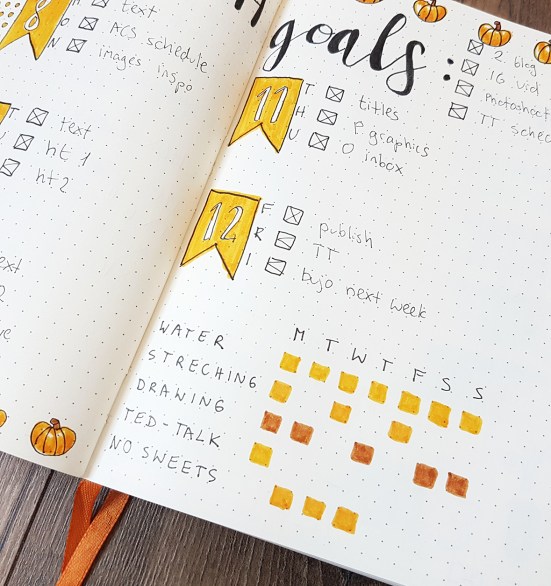 8
text
O ACS schedule
N images inspo
text
ht 1
ht 2
goals:
2 blog
IG vid
Photoshoot
TT
11
T titles
H P graphics
U O inbox
12
F publish
R TT
I bujo next week
M T W T F S S
WATER
STRECHING
DRAWING
TED-TALK
NO SWEETS